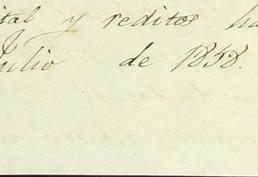 ital y reditos ha
Julio de 1858.